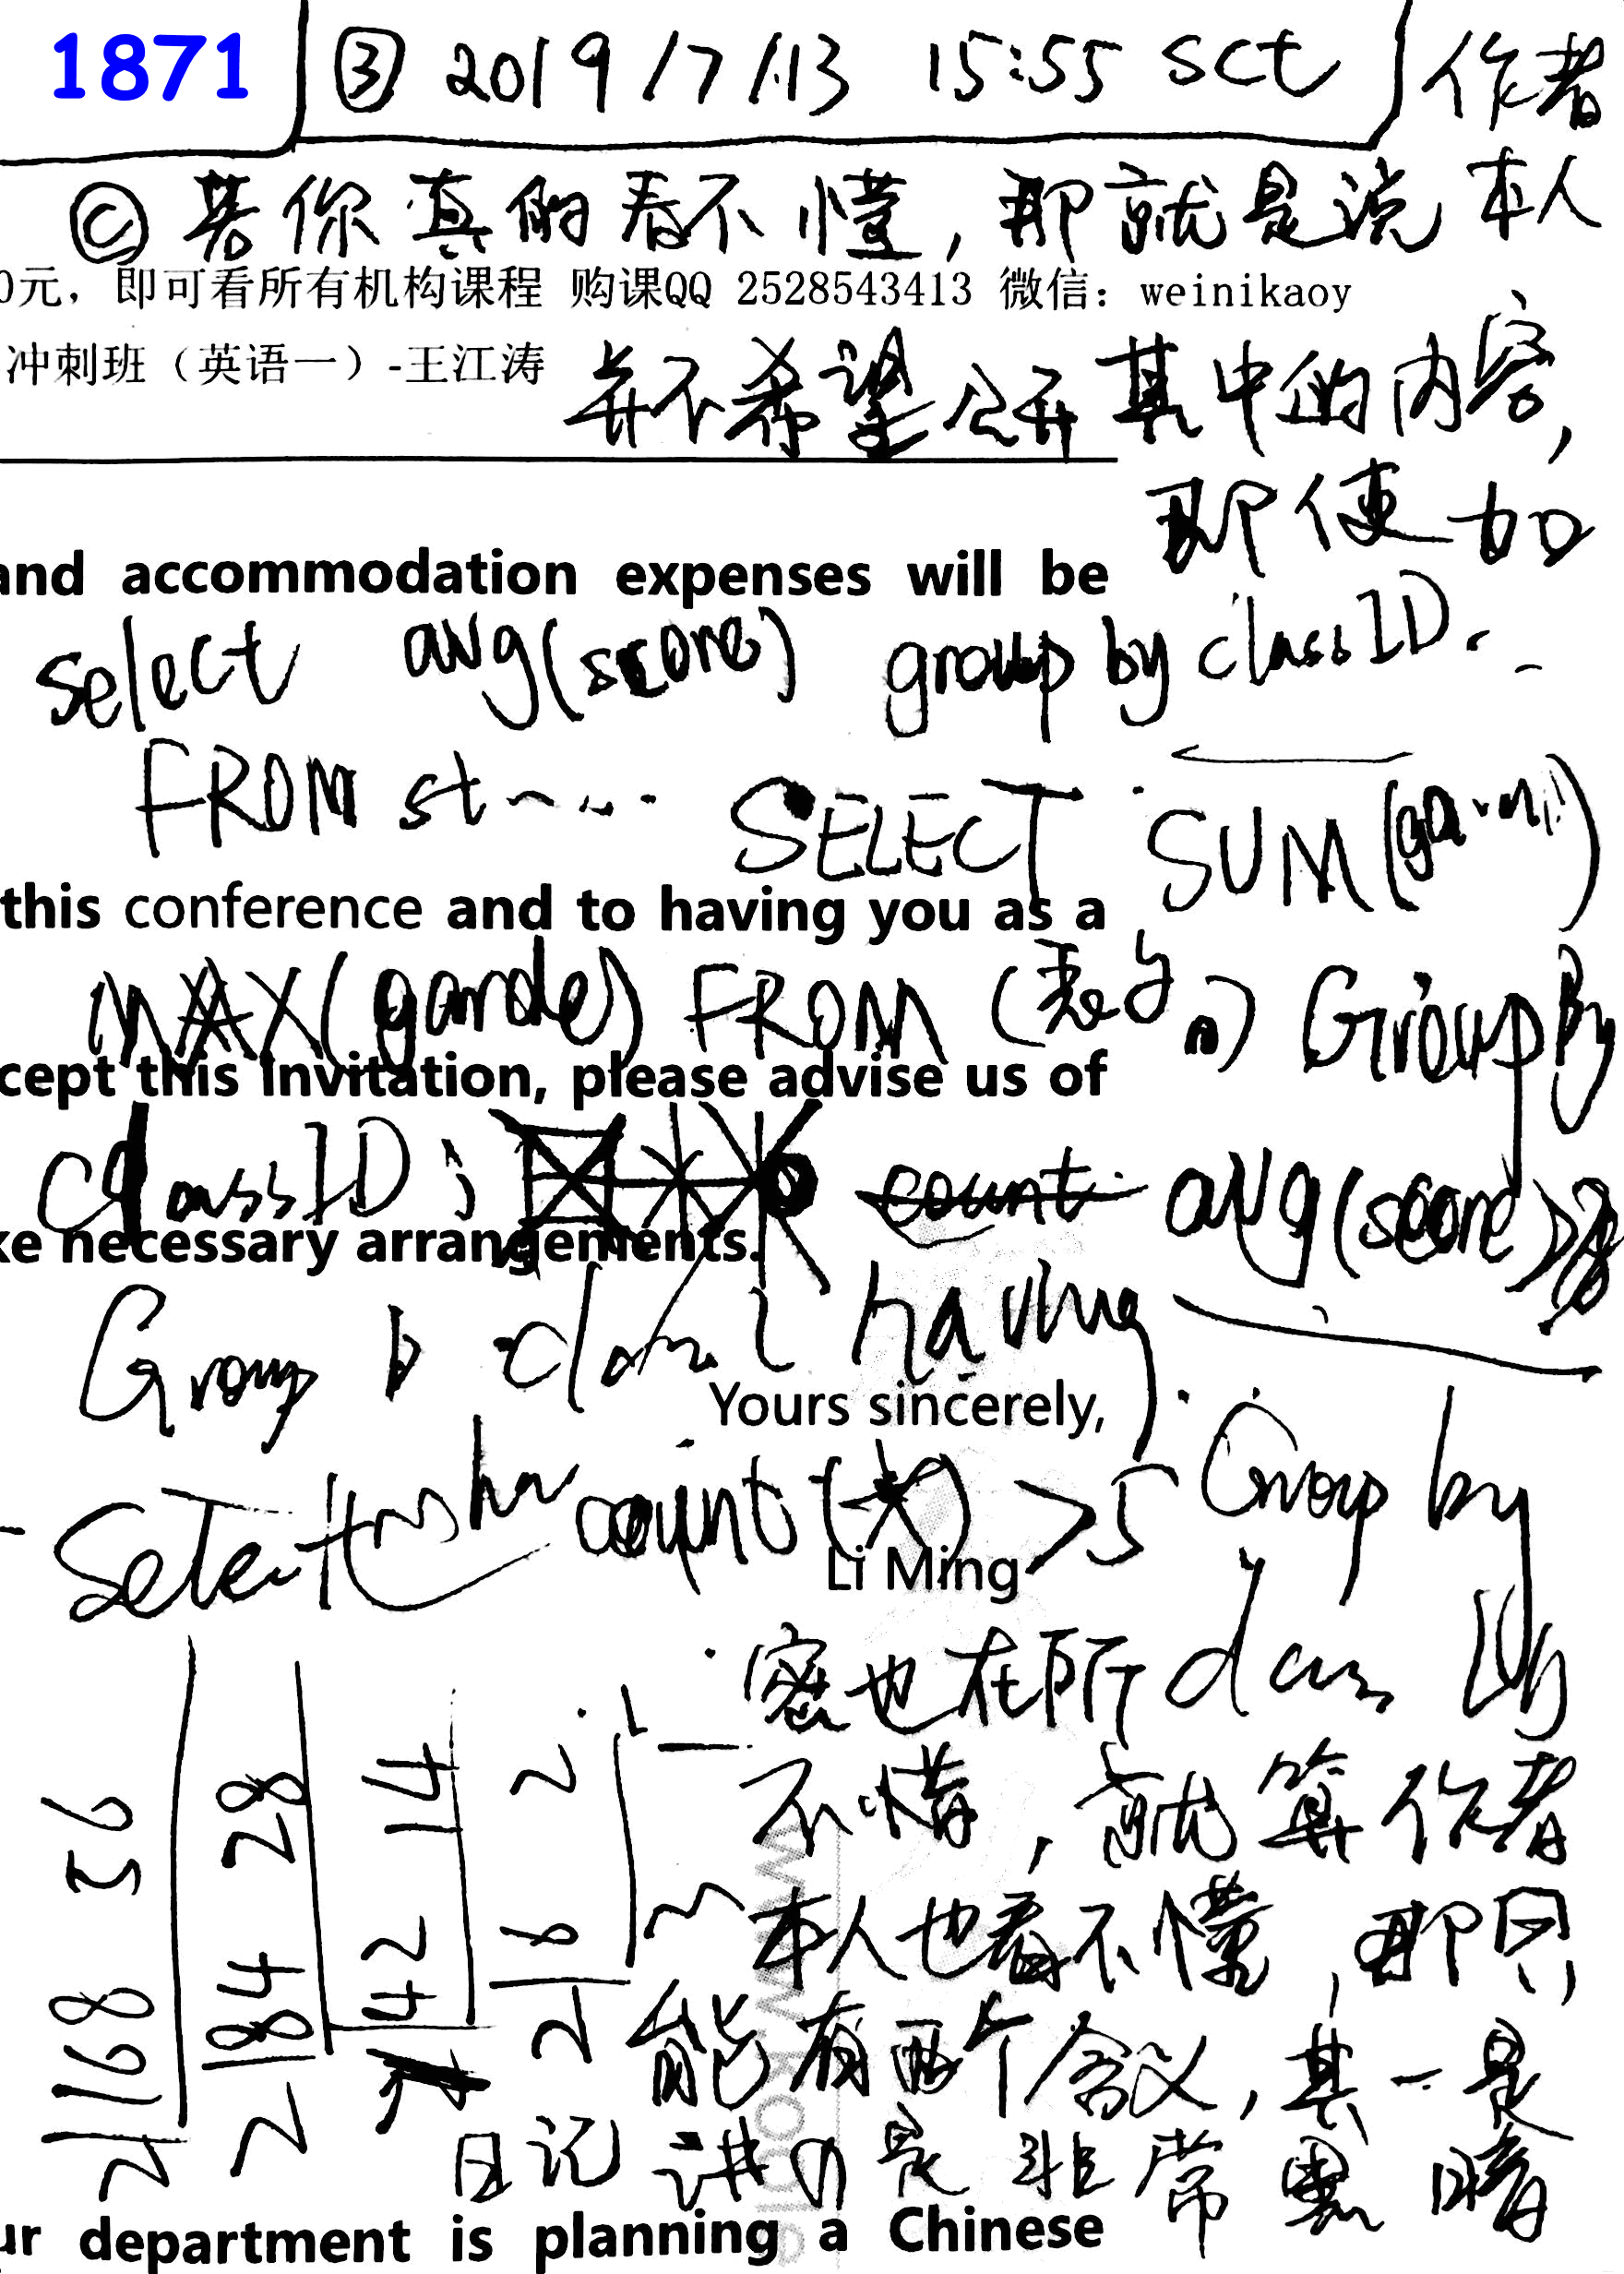 1871 ③ 2019/7/13 15:55 sct 作者
© 若你真的看不懂，那就是说本人
0元，即可看所有机构课程 购课QQ 2528543413 微信：weinikaoy
冲刺班（英语一）-王江涛
并不希望公开其中的内容，
即使加
and accommodation expenses will be
select avg(score) group by classID
FROM st
SELECT SUM
this conference and to having you as a
MAX(garde) FROM (表名) Group By
cept this invitation, please advise us of
classID; count avg(score)
ke necessary arrangements.
Group b having
Yours sincerely,
Select count(*) >5 Group by
Li Ming
密也在所
不惜，就算作者
本人也看不懂，那只
能有两个含义，其一是
日记讲的是非常黑暗
56 28 14 2
168 84 42 8
2 2 2
www.koole
ur department is planning a Chinese